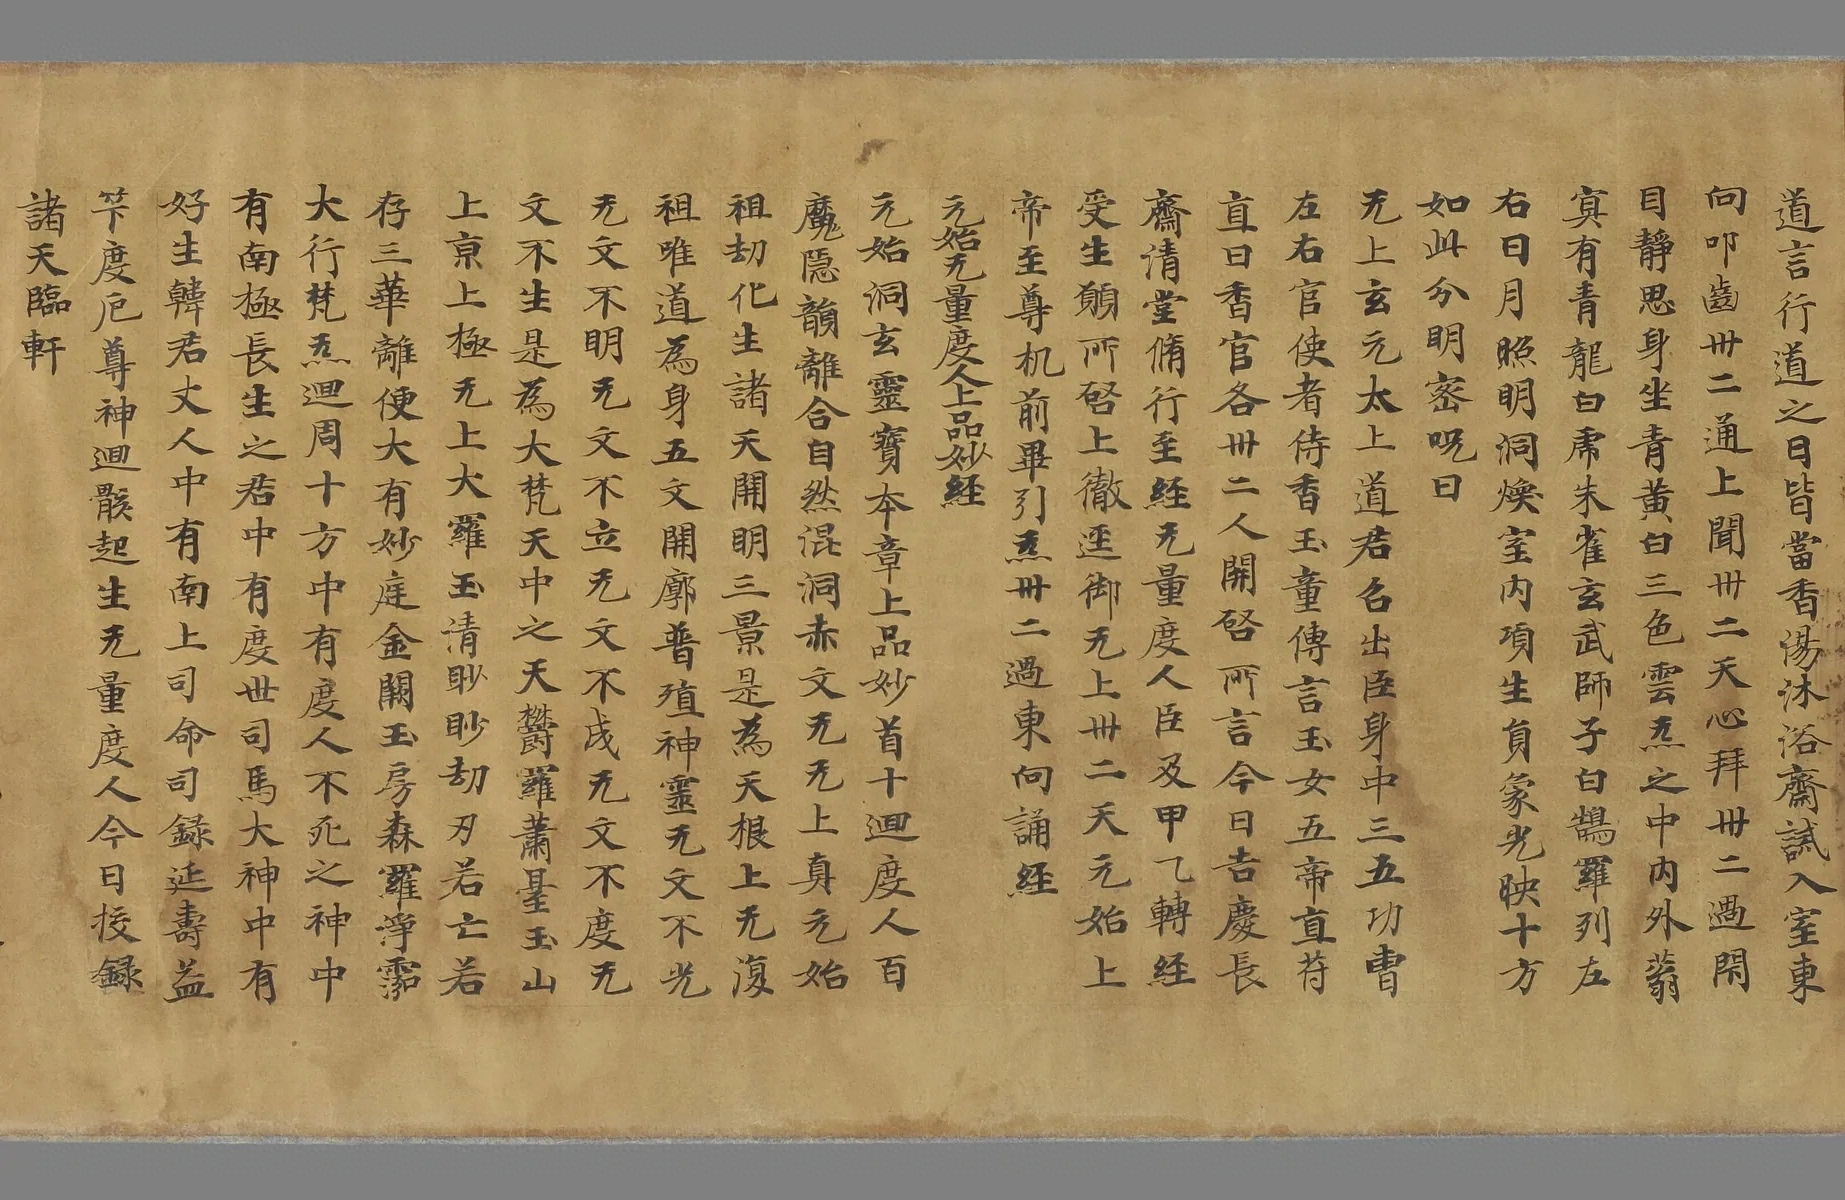 道言行道之日皆當香湯沐浴齋誡入室東
向叩齒卅二通上聞卅二天心拜卅二過閇
目靜思身坐青黃白三色雲炁之中内外蓊
㝠有青龍白虎朱雀玄武師子白鵠羅列左
右日月照明洞煥室内項生負象光映十方
如此分明密呪曰
无上玄元太上道君召出臣身中三五功曺
左右官使者侍香玉童傳言玉女五帝直苻
直日香官各卅二人開啓所言今日吉慶長
齋清堂脩行至經无量度人臣及甲乙轉經
受生願所啓上徹逕御无上卅二天元始上
帝至尊机前畢引炁卅二過東向誦經
元始无量度人上品妙經
元始洞玄靈寶本章上品妙首十迴度人百
魔隱韻離合自然混洞赤文无无上真元始
祖劫化生諸天開明三景是為天根上无復
祖唯道為身五文開廓普殖神靈无文不光
无文不明无文不立无文不成无文不度无
文不生是為大梵天中之天欝羅蕭臺玉山
上京上極无上大羅玉清眇眇劫刃若亡若
存三華離便大有妙庭金闕玉房森羅淨泓
大行梵炁迴周十方中有度人不死之神中
有南極長生之君中有度世司馬大神中有
好生韓君丈人中有南上司命司録延壽益
筭度厄尊神迴骸起生无量度人今日挍録
諸天臨軒